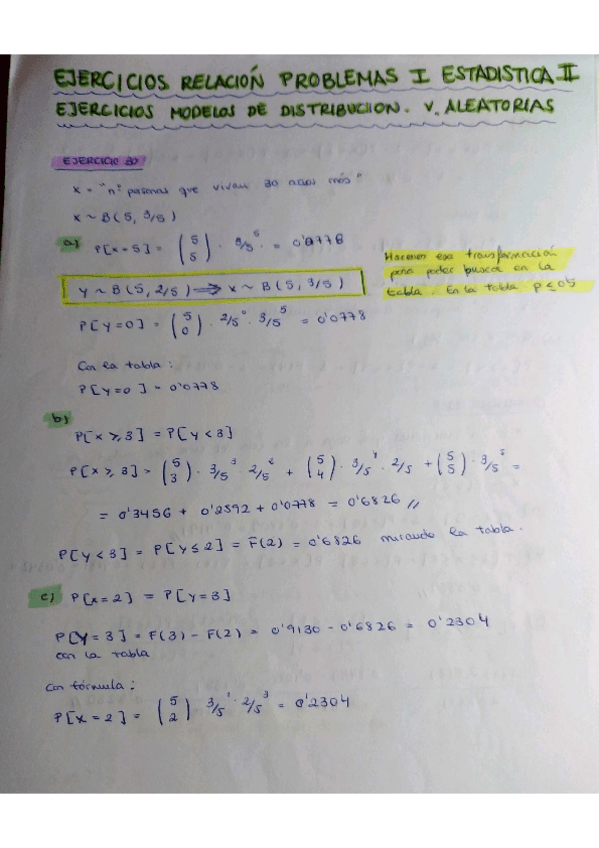 EJERCICIOS RELACIÓN PROBLEMAS I ESTADISTICA II
EJERCICIOS MODELOS DE DISTRIBUCION. V. ALEATORIAS
EJERCICIO 30
X = "nº personas que vivan 30 años más"
X ~ B(5, 3/5)
a) P[X=5] = (5 5) · 3/5^5 = 0'0778
Hacemos esa transformación
para poder buscar en la
tabla. En la tabla p ≤ 0'5
Y ~ B(5, 2/5) ⟹ X ~ B(5, 3/5)
P[Y=0] = (5 0) · 2/5^0 · 3/5^5 = 0'0778
Con la tabla:
P[Y=0] = 0'0778
b)
P[X ≥ 3] = P[Y < 3]
P[X ≥ 3] = (5 3) · 3/5^3 · 2/5^2 + (5 4) · 3/5^4 · 2/5 + (5 5) · 3/5^5 =
= 0'3456 + 0'2592 + 0'0778 = 0'6826 //
P[Y < 3] = P[Y ≤ 2] = F(2) = 0'6826 mirando la tabla.
c) P[X=2] = P[Y=3]
P[Y=3] = F(3) - F(2) = 0'9130 - 0'6826 = 0'2304
con la tabla
Con fórmula:
P[X=2] = (5 2) 3/5 · 2/5^3 = 0'2304